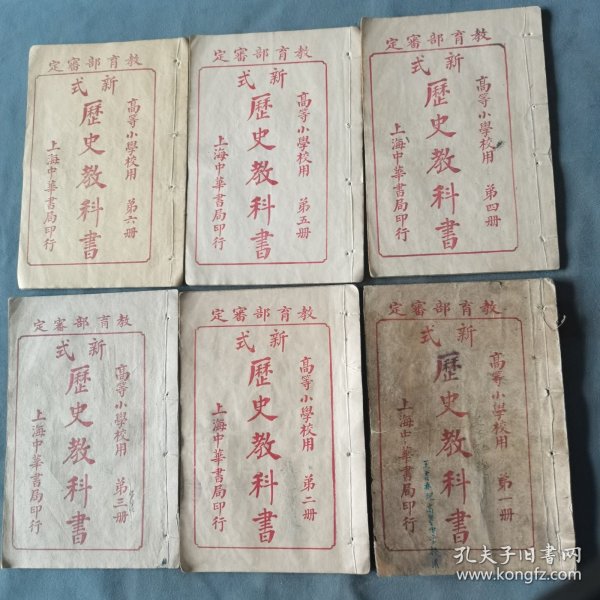 教育部審定
新式
高等小學校用 第四册
歷史教科書
上海中華書局印行
教育部審定
新式
高等小學校用 第五册
歷史教科書
上海中華書局印行
教育部審定
新式
高等小學校用 第六册
歷史教科書
上海中華書局印行
教育部審定
新式
高等小學校用 第一册
歷史教科書
上海中華書局印行
教育部審定
新式
高等小學校用 第二册
歷史教科書
上海中華書局印行
教育部審定
新式
高等小學校用 第三册
歷史教科書
上海中華書局印行
孔夫子旧书网
www.kongfz.com